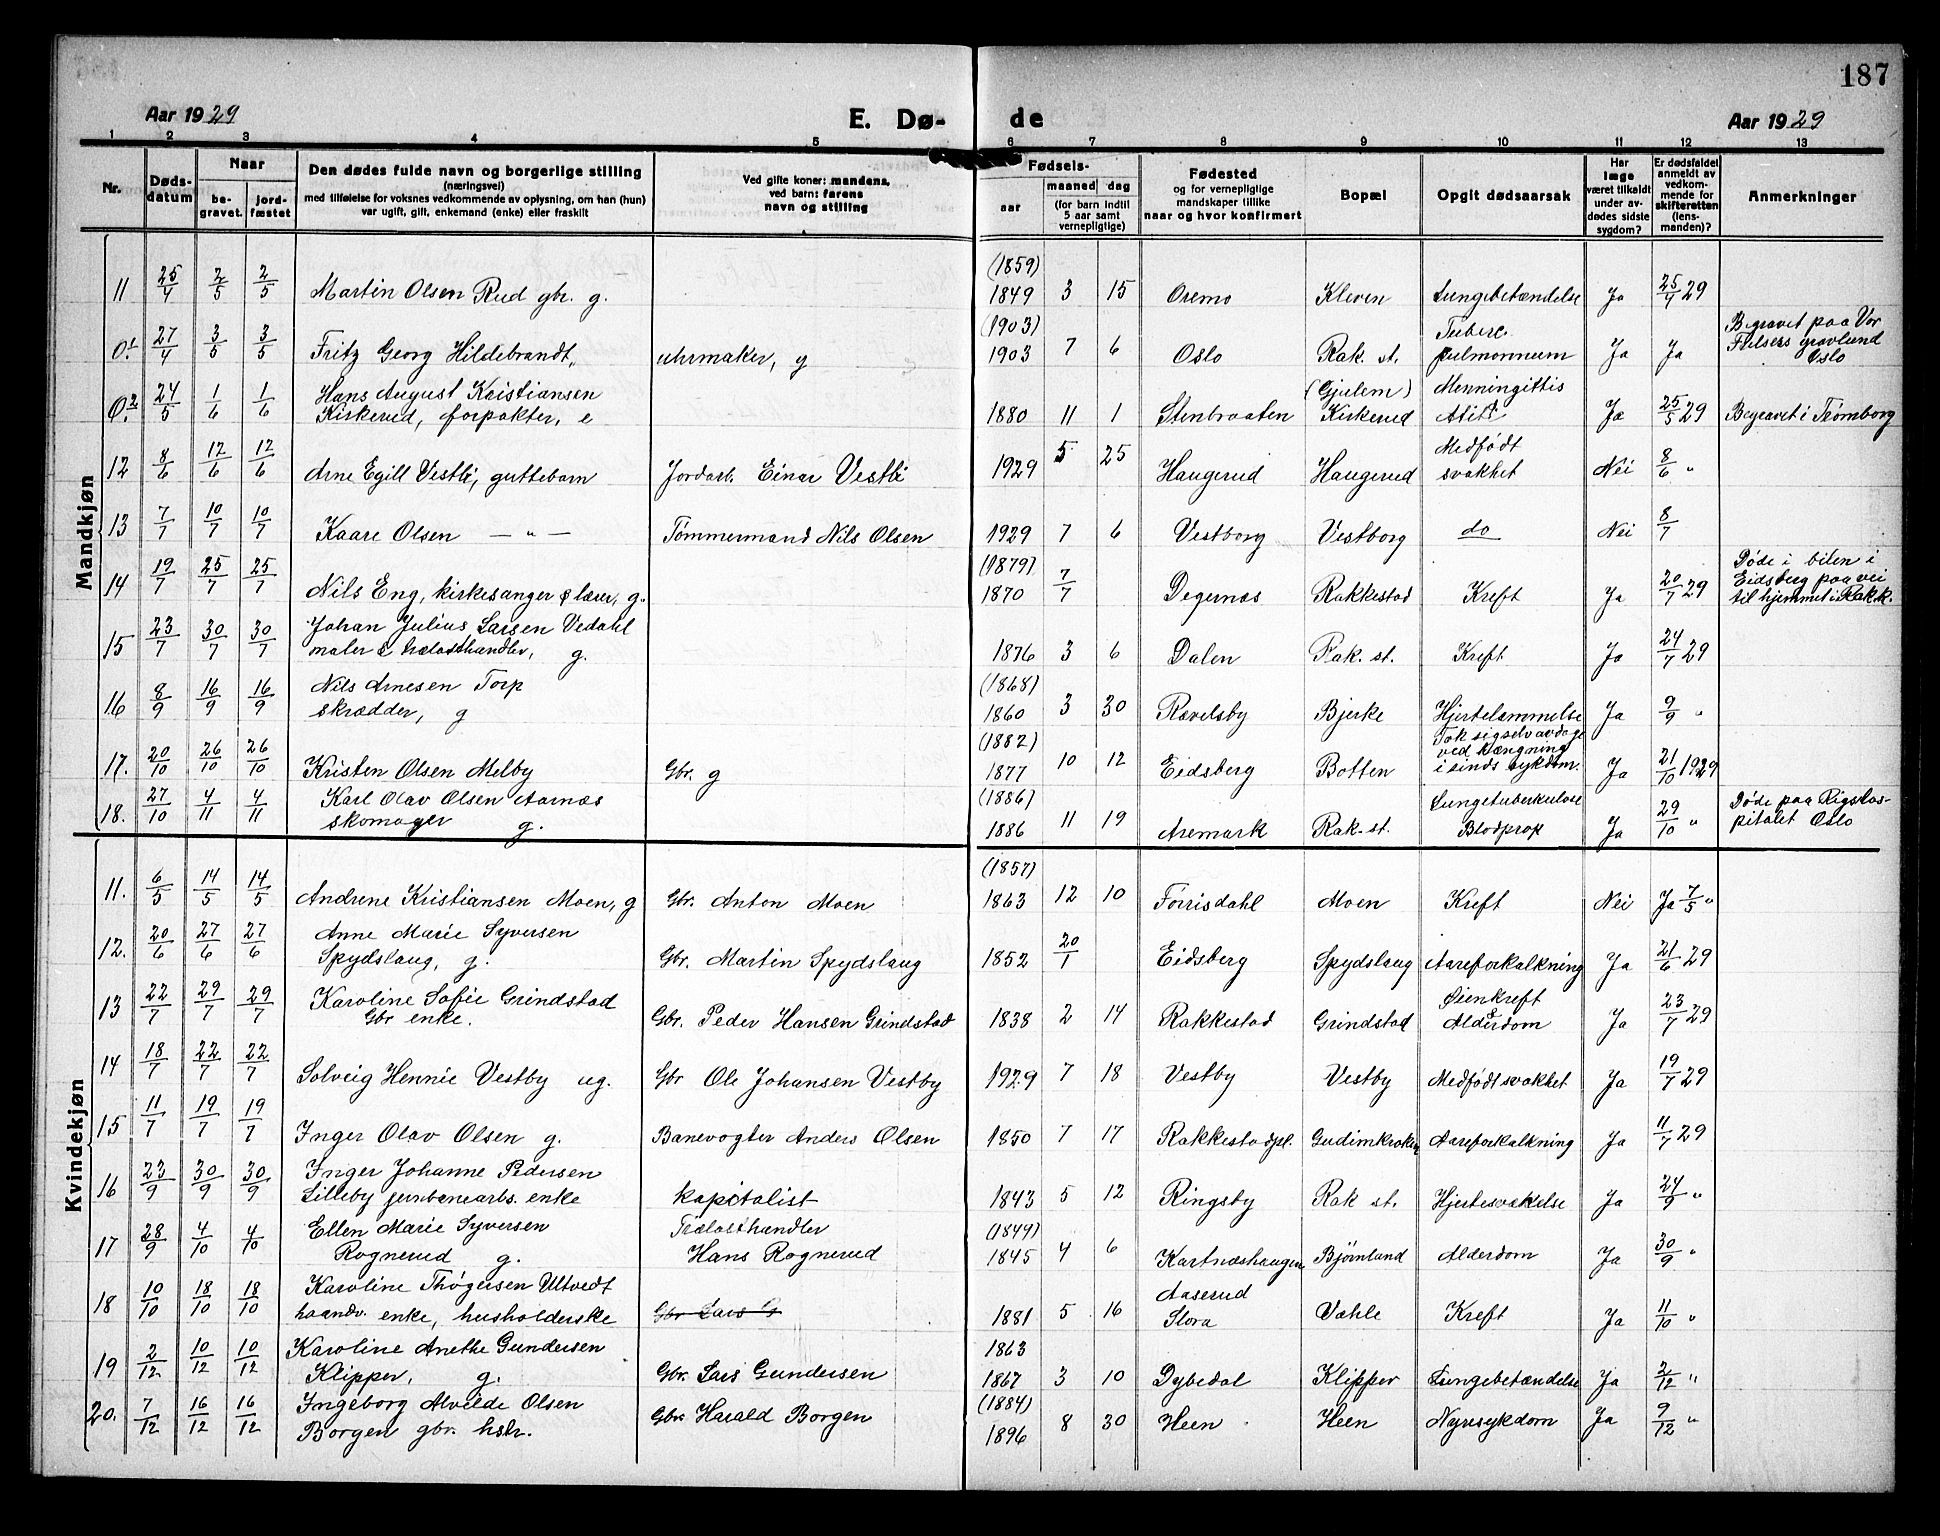 187
Aar 1929 E. Dø- de Aar 1929
1 2 3 4 5 6 7 8 9 10 11 12 13
Nr. Døds-datum Naar be-gravet. jord-fæstet Den dødes fulde navn og borgerlige stilling (næringsvei) med tilføielse for voksnes vedkommende av oplysning, om han (hun) var ugift, gift, enkemand (enke) eller fraskilt Ved gifte koner: mandens, ved barn: farens navn og stilling Fødsels- aar maaned dag (for barn indtil 5 aar samt vernepligtige) Fødested og for vernepligtige mandskaper tillike naar og hvor konfirmert Bopæl Opgit dødsaarsak Har læge været tilkaldt under av-dødes sidste sygdom? Er dødsfaldet anmeldt av vedkom-mende for skifteretten (lens-manden)? Anmerkninger
Mandkjøn
11 25/4 2/5 2/5 Martin Olsen Rud gbr. g. (1859) 1849 3 15 Oremo Kleven Lungebetændelse Ja 25/4 29
0.1 27/4 3/5 3/5 Fritz Georg Hildebrandt, uhrmaker, g (1903) 1903 7 6 Oslo Rak. st. Tuberc. pulmonnum Ja Ja Begravet paa Vor Frelsers gravlund Oslo
0.2 24/5 1/6 1/6 Hans August Kristiansen Kirkerud, forpakter, e 1880 11 1 Stenbraaten (Gjulem) Kirkerud Menningittis Ja 25/5 29 Begravet i Trømborg
12 8/6 12/6 12/6 Arne Egill Vestli, guttebarn Jordarb. Einar Vestli 1929 5 25 Haugerud Haugerud Medfødt svakhet Nei 8/6 "
13 7/7 10/7 10/7 Kaare Olsen — " — Tømmermand Nils Olsen 1929 7 6 Vestborg Vestborg do Nei 8/7
14 19/7 25/7 25/7 Nils Eng, kirkesanger & lærer, g. (1879) 1870 7/7 Degernæs Rakkestad Kreft Ja 20/7 29 Døde i bilen i Eidsberg paa vei til hjemmet i Rakk.
15 23/7 30/7 30/7 Johan Julius Larsen Vedahl maler & trælasthandler, g. 1876 3 6 Dalen Rak. st. Kreft Ja 24/7 29
16 8/9 16/9 16/9 Nils Arnesen Torp skrædder, g (1868) 1860 3 30 Rævelsby Bjerke Hjertelammelse Ja 9/9 "
17. 20/10 26/10 26/10 Kristen Olsen Melby Gbr. g (1882) 1877 10 12 Eidsberg Botten Tok sig selv av dage ved hængning i sinds sykdom. Ja 21/10 1929
18. 27/10 4/11 4/11 Karl Olav Olsen Aarnæs skomager g. (1886) 1886 11 19 Aremark Rak. st. Lungetuberkulose Blodprop Ja 29/10 " Døde paa Rigshos-pitalet Oslo
Kvindekjøn
11. 6/5 14/5 14/5 Andrene Kristiansen Moen, g Gbr. Anton Moen (1857) 1863 12 10 Førrisdahl Moen Kreft Nei Ja 7/5 "
12. 20/6 27/6 27/6 Anne Marie Syversen Spydslaug, g. Gbr. Martin Spydslaug 1852 20/1 Eidsberg Spydslaug Aareforkalkning Ja 21/6 29
13 22/7 29/7 29/7 Karoline Sofie Grindstad Gbr enke. Gbr. Peder Hansen Grindstad 1838 2 14 Rakkestad Grindstad Øienkreft & Alderdom Ja 23/7 29
14 18/7 22/7 22/7 Solveig Hennie Vestby ug. Gbr Ole Johansen Vestby 1929 7 18 Vestby Vestby Medfødt svakhet Ja 19/7 29
15 11/7 19/7 19/7 Inger Olav Olsen g. Banevogter Anders Olsen 1850 7 17 Rakkestadpl. Gudimkroken Aareforkalkning Ja 11/7 29
16 23/9 30/9 30/9 Inger Johanne Pedersen Lilleby jernbanearb. enke kapitalist 1843 5 12 Ringsby Rak st. Hjertesvækelse Ja 24/9 "
17 28/9 4/10 4/10 Ellen Marie Syversen Rognerud g. Trælasthandler Hans Rognerud (1849) 1845 4 6 Kartnæshaugen Bjørnland Alderdom Ja 30/9 "
18 10/10 18/10 18/10 Karoline Thøgersen Ultvedt haandv. enke, husholderske Gbr Lars G 1881 5 16 Aaserud Stora Væhle Kreft Ja 11/10 "
19 2/12 10/12 10/12 Karoline Anethe Gundersen Klipper, g. Gbr. Lars Gundersen 1863 1867 3 10 Dybedal Klipper Lungebetændelse Ja 2/12 "
20. 7/12 16/12 16/12 Ingeborg Alvilde Olsen Borgen gbr. hstr. Gbr. Harald Borgen (1884) 1896 8 30 Heen Heen Nyresykdom Ja 9/12 "